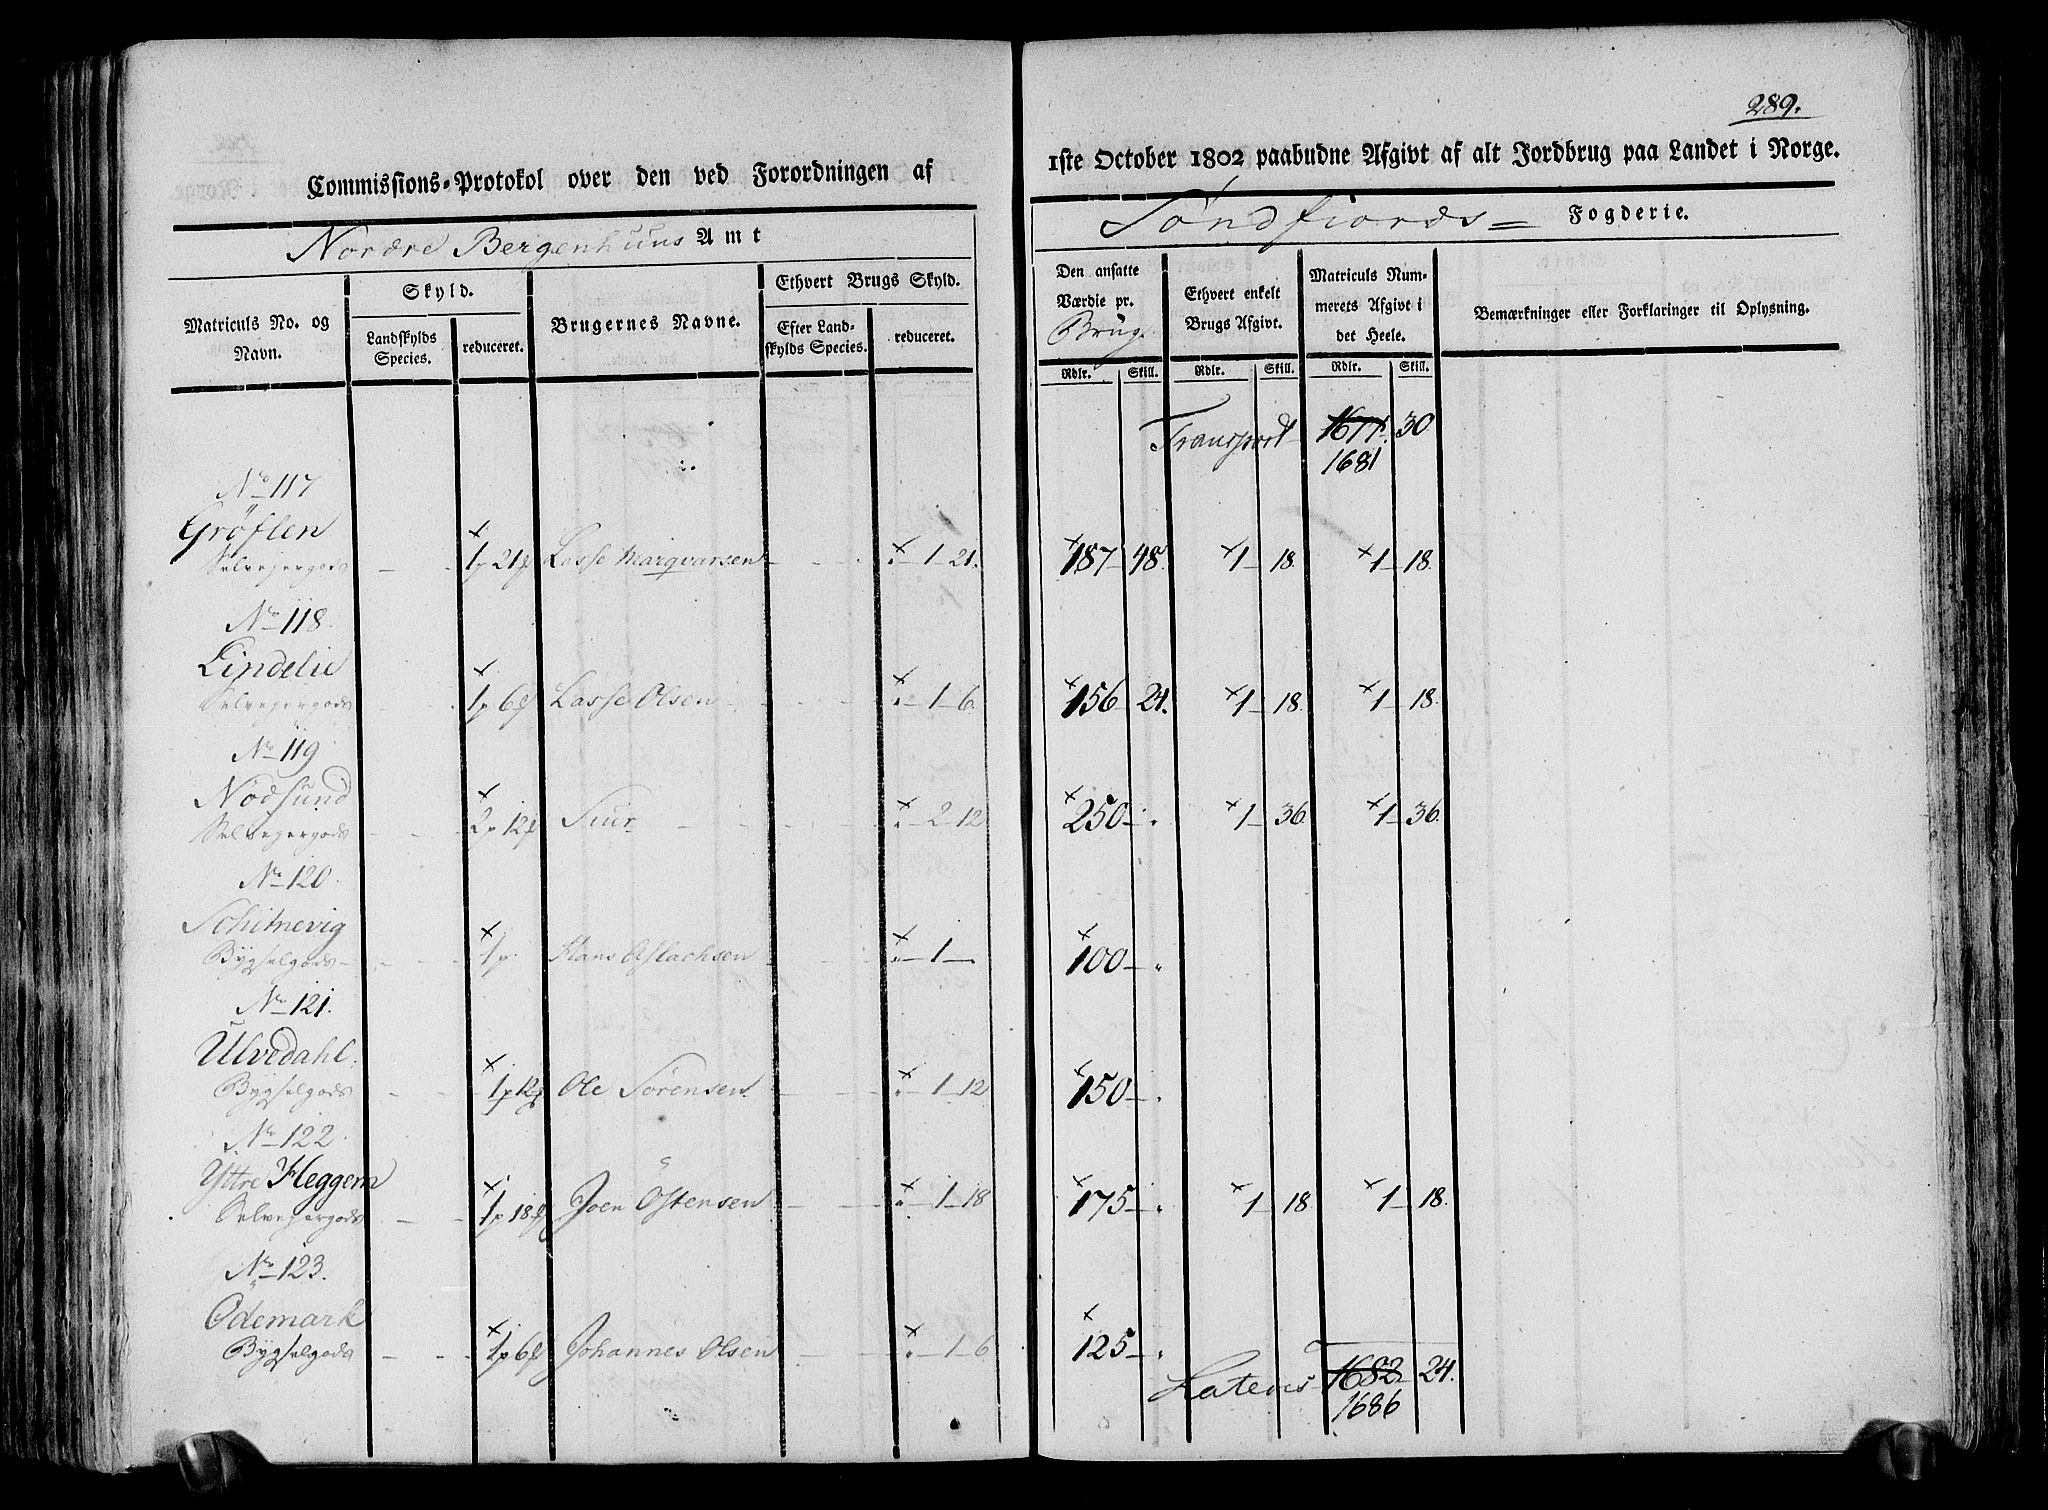 289.
Commissions-Protokol over den ved Forordningen af 1ste October 1802 paabudne Afgivt af alt Jordbrug paa Landet i Norge.
Nordre Bergenhuus Amt
Søndfiords = Fogderie.
Matriculs No. og Navn.
Skyld.
Landskylds Species.
reduceret.
Brugernes Navne.
Ethvert Brugs Skyld.
Efter Landskylds Species.
reduceret.
Den ansatte Værdie pr. Brug.
Rdlr. Skill.
Ethvert enkelt Brugs Afgivt.
Rdlr. Skill.
Matriculs Nummerets Afgivt i det Heele.
Rdlr. Skill.
Bemærkninger eller Forklaringer til Oplysning.
Transport 1677. 30
1681
No 117
Grøflen
Selvejergods - 1p 21f Lasse Marqvarsen - 1-21. 187-48. 1-18. 1-18.
No 118.
Lindelie
Selvejergods 1p 6f Lasse Olsen - 1-6. 156-24. 1-18. 1-18.
No 119
Nodsund
Selvejergods 2p 12f Siur - 2-12 250- 1-36. 1-36.
No 120.
Schitnevig
Bygselgods - 1p. Hans Aslachsen - 1- 100-
No 121.
Ulvedahl.
Bygselgods - 1p 12f Ole Sørensen - 1-12 150-
No 122.
Yttre Heggem
Selvejergods - 1p 18f Joen Ostensen - 1-18 175- 1-18. 1-18.
No 123.
Ödemark
Bygselgods - 1p 6f Johannes Olsen - 1-6 125-
Lateris 1682- 24.
1686